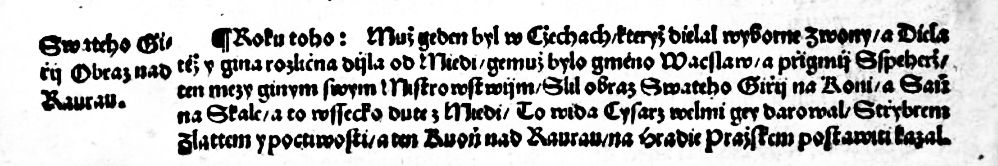 Swateho Gi⸗
řij Obraz nad
Raurau.
¶Roku toho: Muž geden byl w Czechach/kteryž dielal wyborne Zwony/a Diela
též y gina rozlična dijla od Miedi/gemuž bylo gméno Waclaw/a přigmij Sſpeherž/
ten mezy ginym ſwym Miſtrowſtwijm/Slil obraz Swateho Giřij na Koni/a Saň
na Skale/a to wſſecko dute z Miedi/ To wida Cyſarz welmi gey darowal/Střybrem
Zlattem y poctiwoſti/a ten Kuoň nad Raurau/na Hradie Pražſkem poſtawiti kazal.